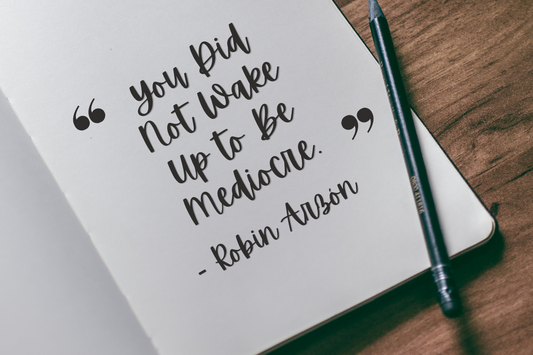 “ You Did
Not Wake
Up to Be
Mediocre. ”
- Robin Arzón